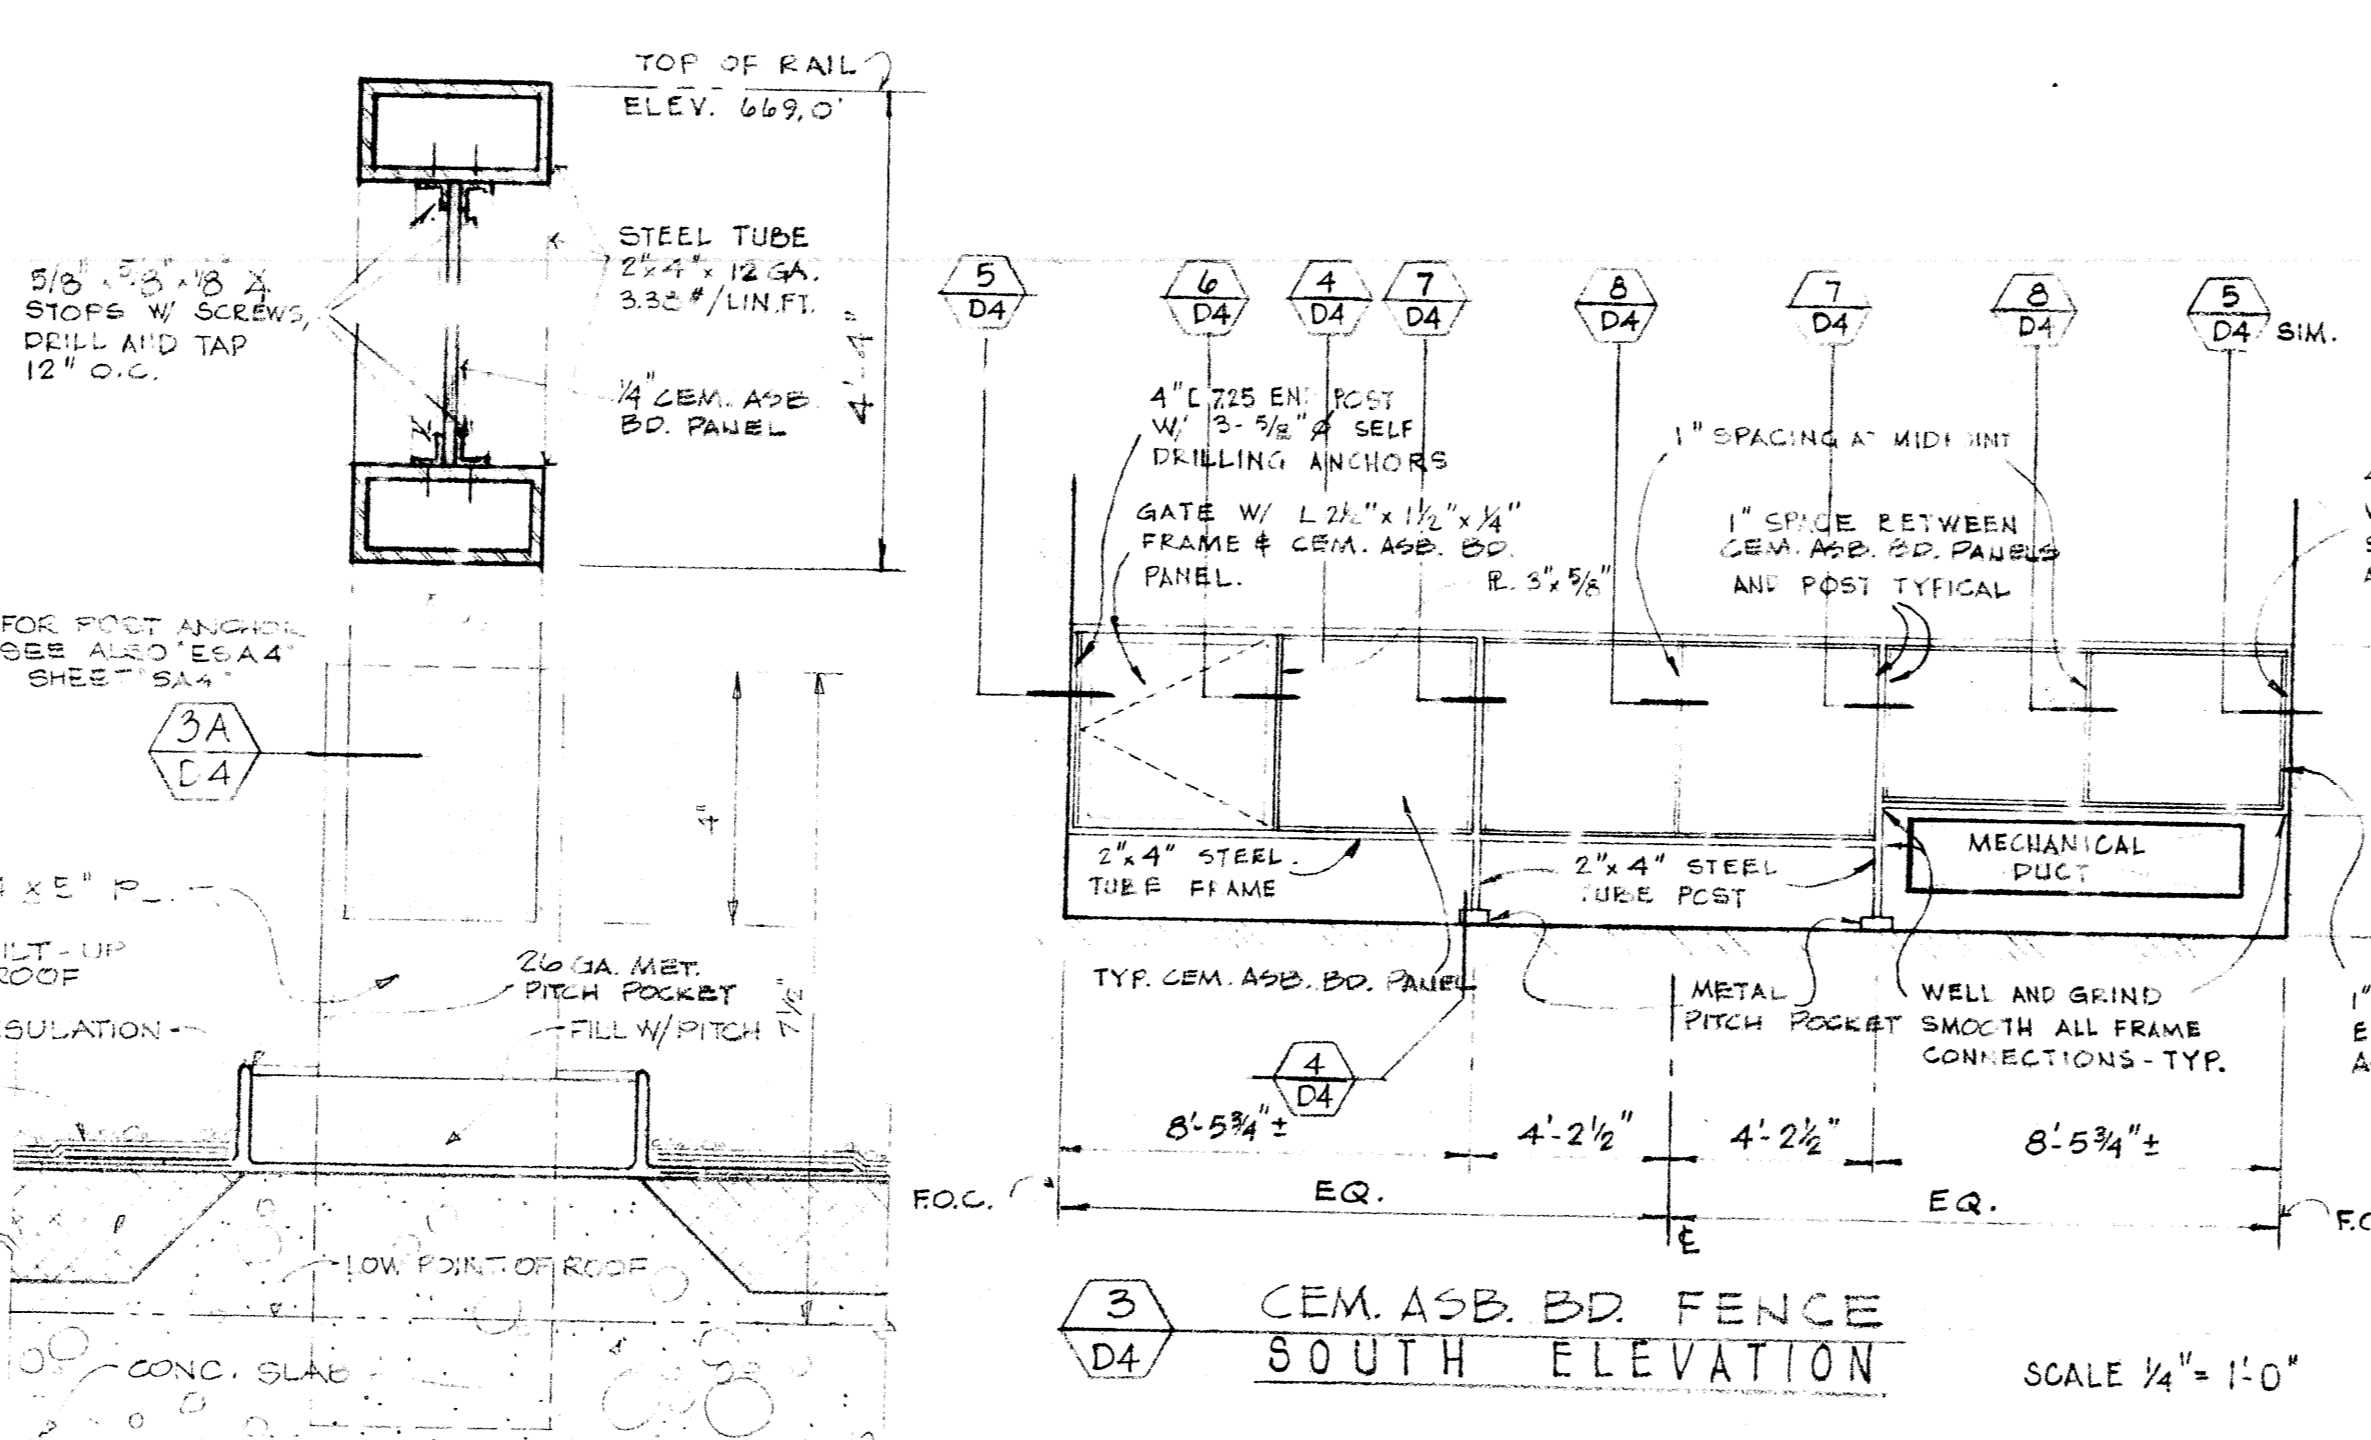 TOP OF RAIL
ELEV. 669.0'
5/8" x 5/8" x 1/8" ∡
STOPS W/ SCREWS,
DRILL AND TAP
12" O.C.
STEEL TUBE
2" x 4" x 12 GA.
3.38 #/LIN.FT.
1/4" CEM. ASB.
BD. PANEL
4'-4"
FOR POST ANCHOR
SEE ALSO "ESA4"
SHEET "SA4"
3A
D4
4"
7 1/2"
x 5" PL.
ILT-UP
ROOF
SULATION
26 GA. MET.
PITCH POCKET
FILL W/ PITCH
LOW POINT OF ROOF
CONC. SLAB
5
D4
6
D4
4
D4
7
D4
8
D4
7
D4
8
D4
5
D4 SIM.
4" [ 7.25 END POST
W/ 3- 5/8" Ø SELF
DRILLING ANCHORS
GATE W/ L 2 1/2" x 1 1/2" x 1/4"
FRAME & CEM. ASB. BD.
PANEL.
PL 3" x 5/8"
1" SPACING AT MIDPOINT
1" SPACE BETWEEN
CEM. ASB. BD. PANELS
AND POST TYPICAL
2" x 4" STEEL
TUBE FRAME
2" x 4" STEEL
TUBE POST
MECHANICAL
DUCT
TYP. CEM. ASB. BD. PANEL
METAL
PITCH POCKET
WELL AND GRIND
SMOOTH ALL FRAME
CONNECTIONS - TYP.
4
D4
8'-5 3/4" ±
4'-2 1/2"
4'-2 1/2"
8'-5 3/4" ±
F.O.C.
EQ.
EQ.
℄
3
D4
CEM. ASB. BD. FENCE
SOUTH ELEVATION
SCALE 1/4" = 1'-0"